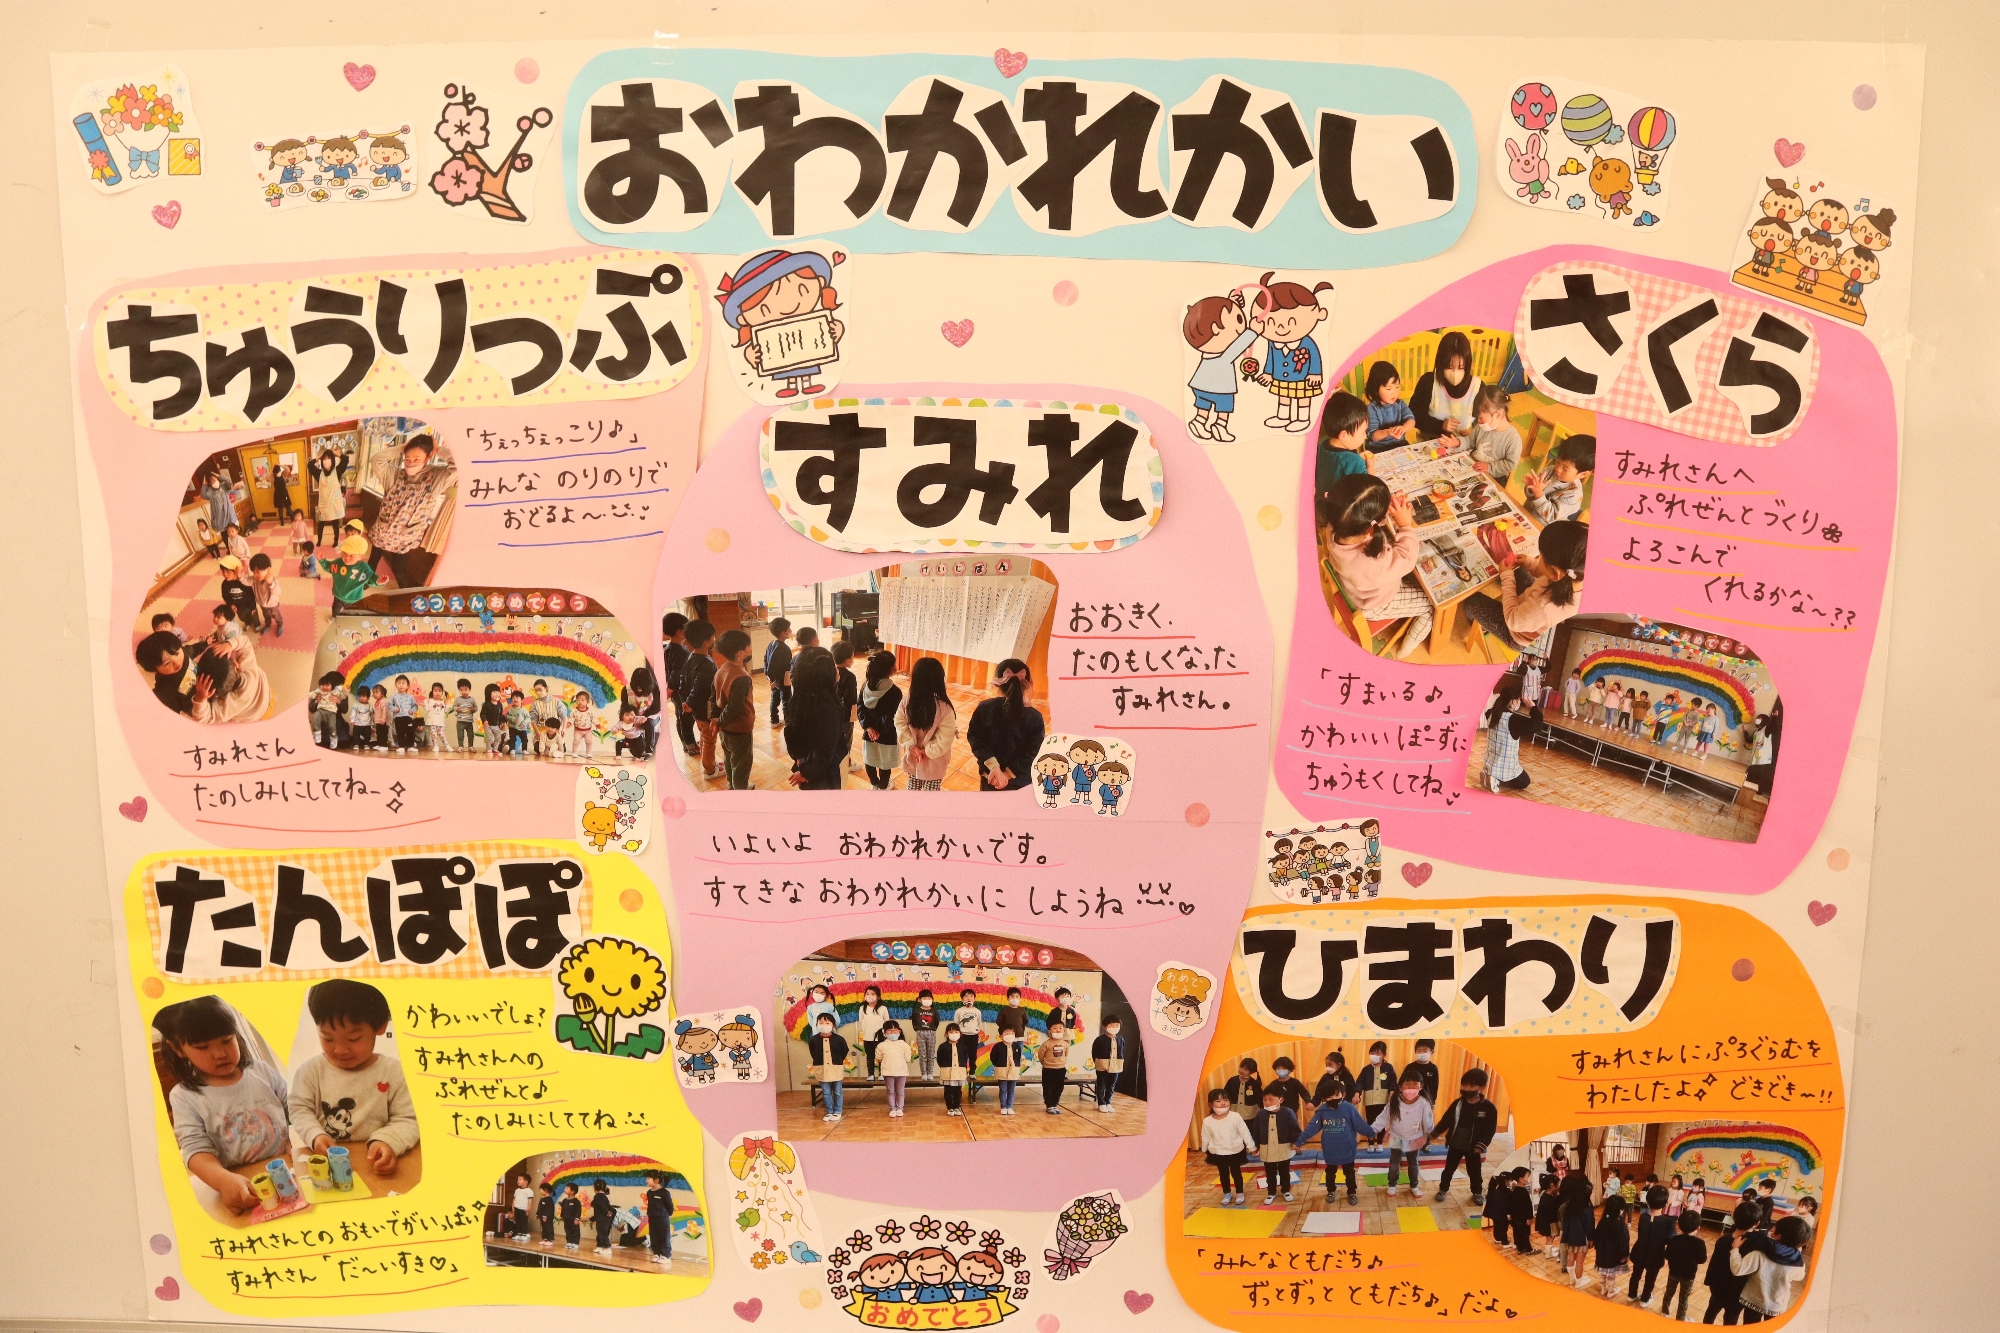 おわかれかい
ちゅうりっぷ
「ちぇっちぇっこり♪」
みんな のりのりで
おどるよ〜
そつえんおめでとう
すみれさん
たのしみにしててねー
すみれ
けいじばん
おおきく、
たのもしくなった
すみれさん。
いよいよ おわかれかいです。
すてきな おわかれかいに しようね♡
そつえんおめでとう
さくら
すみれさんへ
ぷれぜんとづくり
よろこんで
くれるかな〜??
そつえんおめでとう
「すまいる♪」
かわいい ぽーずに
ちゅうもくしてね
たんぽぽ
かわいいでしょ?
すみれさんへの
ぷれぜんと♪
たのしみにしててね
すみれさんとの おもいでがいっぱい
すみれさん「だ〜いすき♡」
ひまわり
すみれさんに ぷろぐらむを
わたしたよ どきどき〜!!
「みんなともだち♪
ずっとずっと ともだち♪」だよ
おめでとう
おめでとう